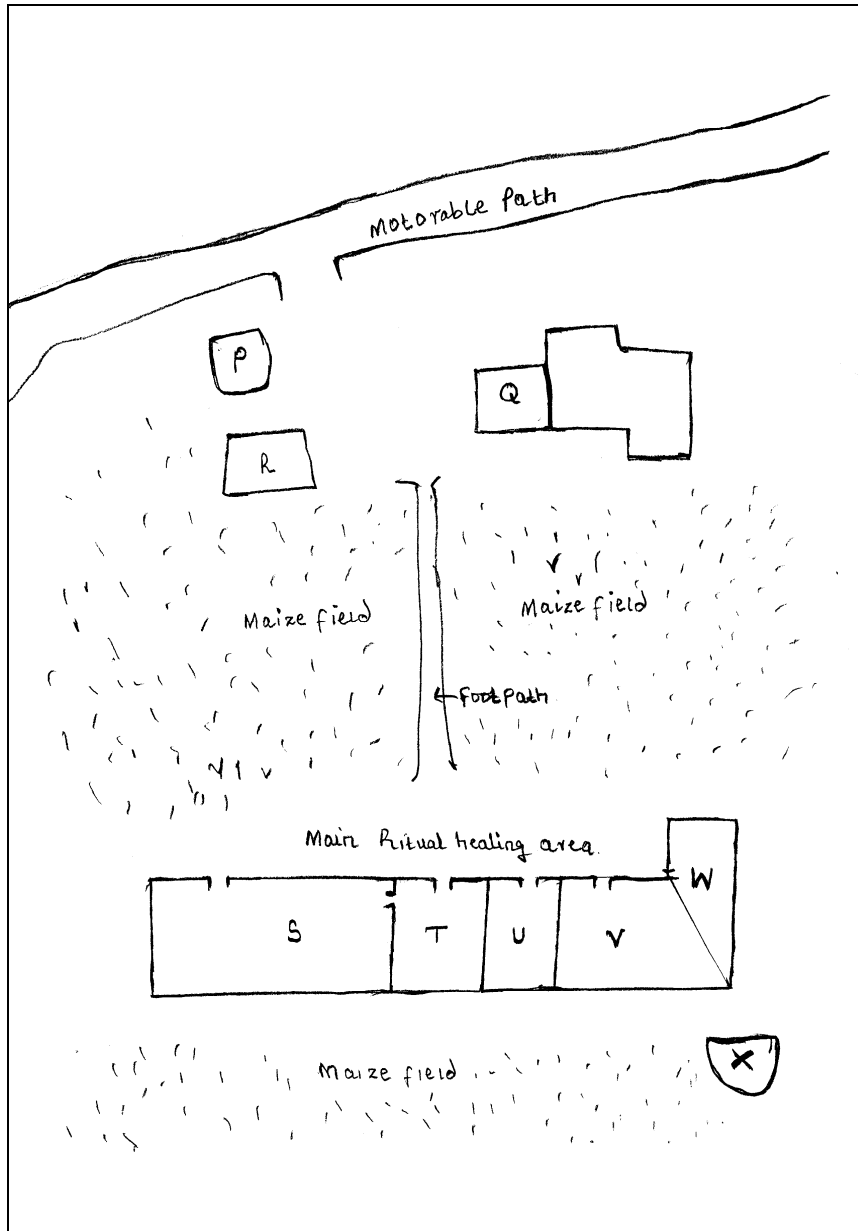 Motorable Path
P
Q
R
Maize field
Maize field
Footpath
Main Ritual healing area.
W
S
T
U
V
X
Maize field